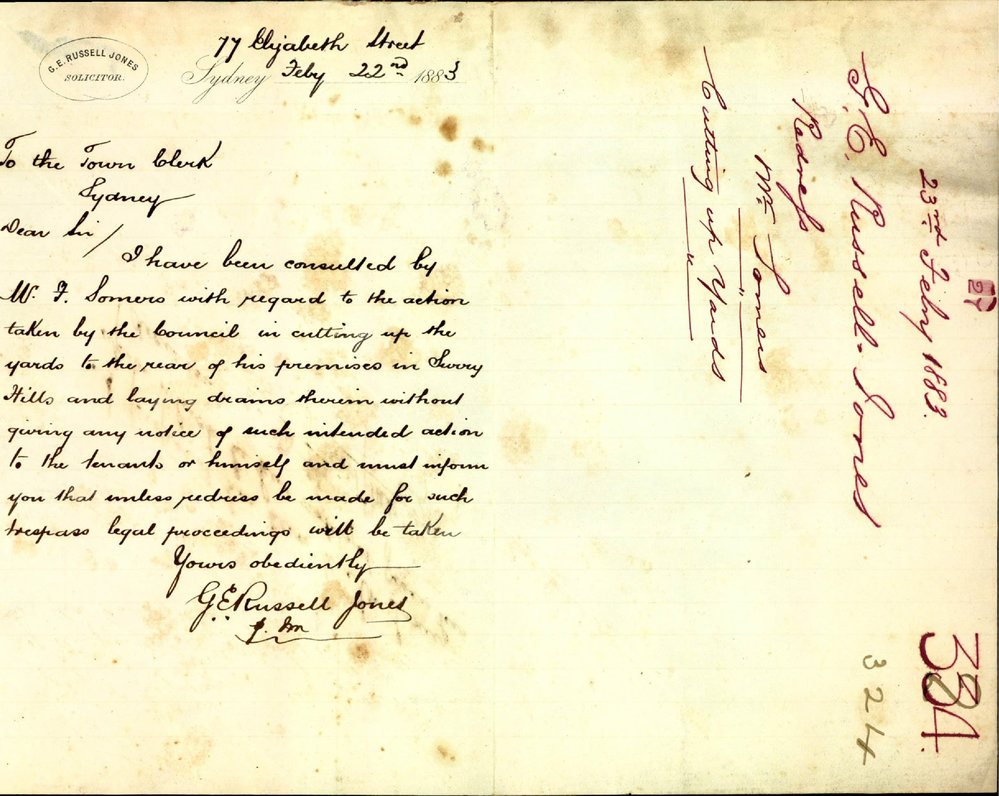 G. E. RUSSELL JONES
SOLICITOR.
77 Elizabeth Street
Sydney Feby 22nd 1883
To the Town Clerk
Sydney
Dear Sir/
I have been consulted by
W. F. Somers with regard to the action
taken by the Council in cutting up the
yards to the rear of his premises in Surry
Hills and laying drains therein without
giving any notice of such intended action
to the tenants or himself and must inform
you that unless redress be made for such
trespass legal proceedings will be taken
Yours obediently
G. E. Russell Jones
23rd Feby 1883.
G. E. Russell-Jones
Redress
Mr Somers
Cutting up Yards
324